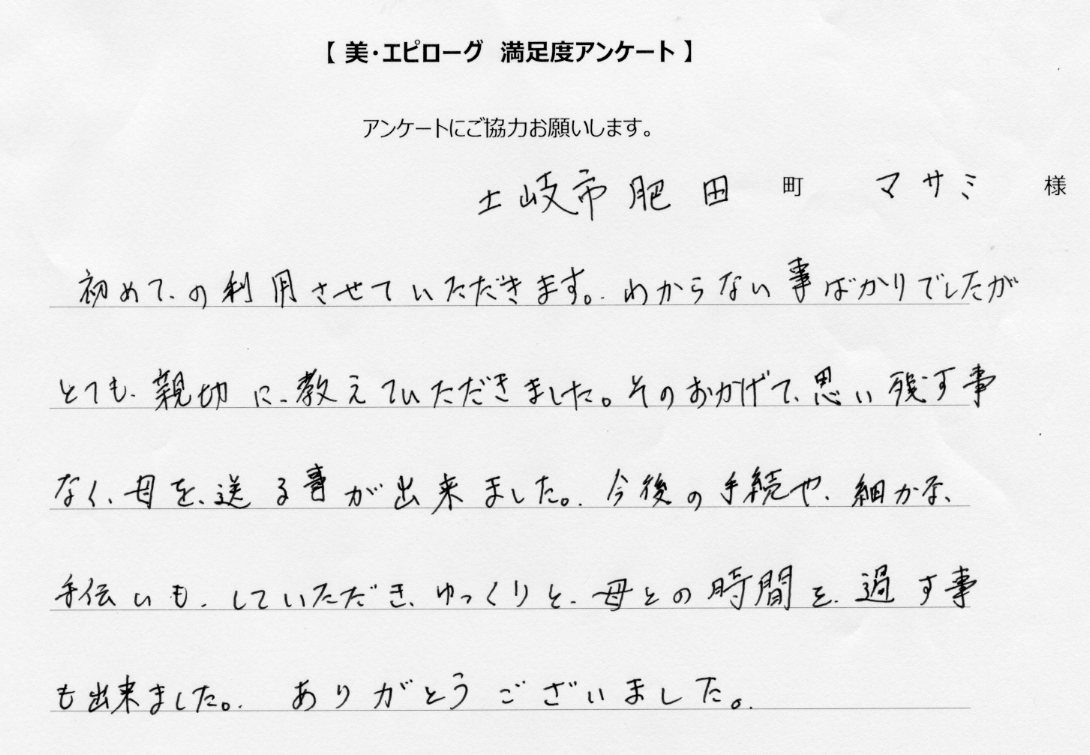 【 美・エピローグ 満足度アンケート 】
アンケートにご協力お願いします。
土岐市肥田 町 マサミ 様
初めての利用させていただきます。わからない事ばかりでしたが
とても、親切に、教えていただだきました。そのおかげで、思い残す事
なく、母を、送る事が出来ました。今後の手続や、細かな、
手伝いも、していただき、ゆっくりと、母との時間を、過す事
も出来ました。ありがとうございました。